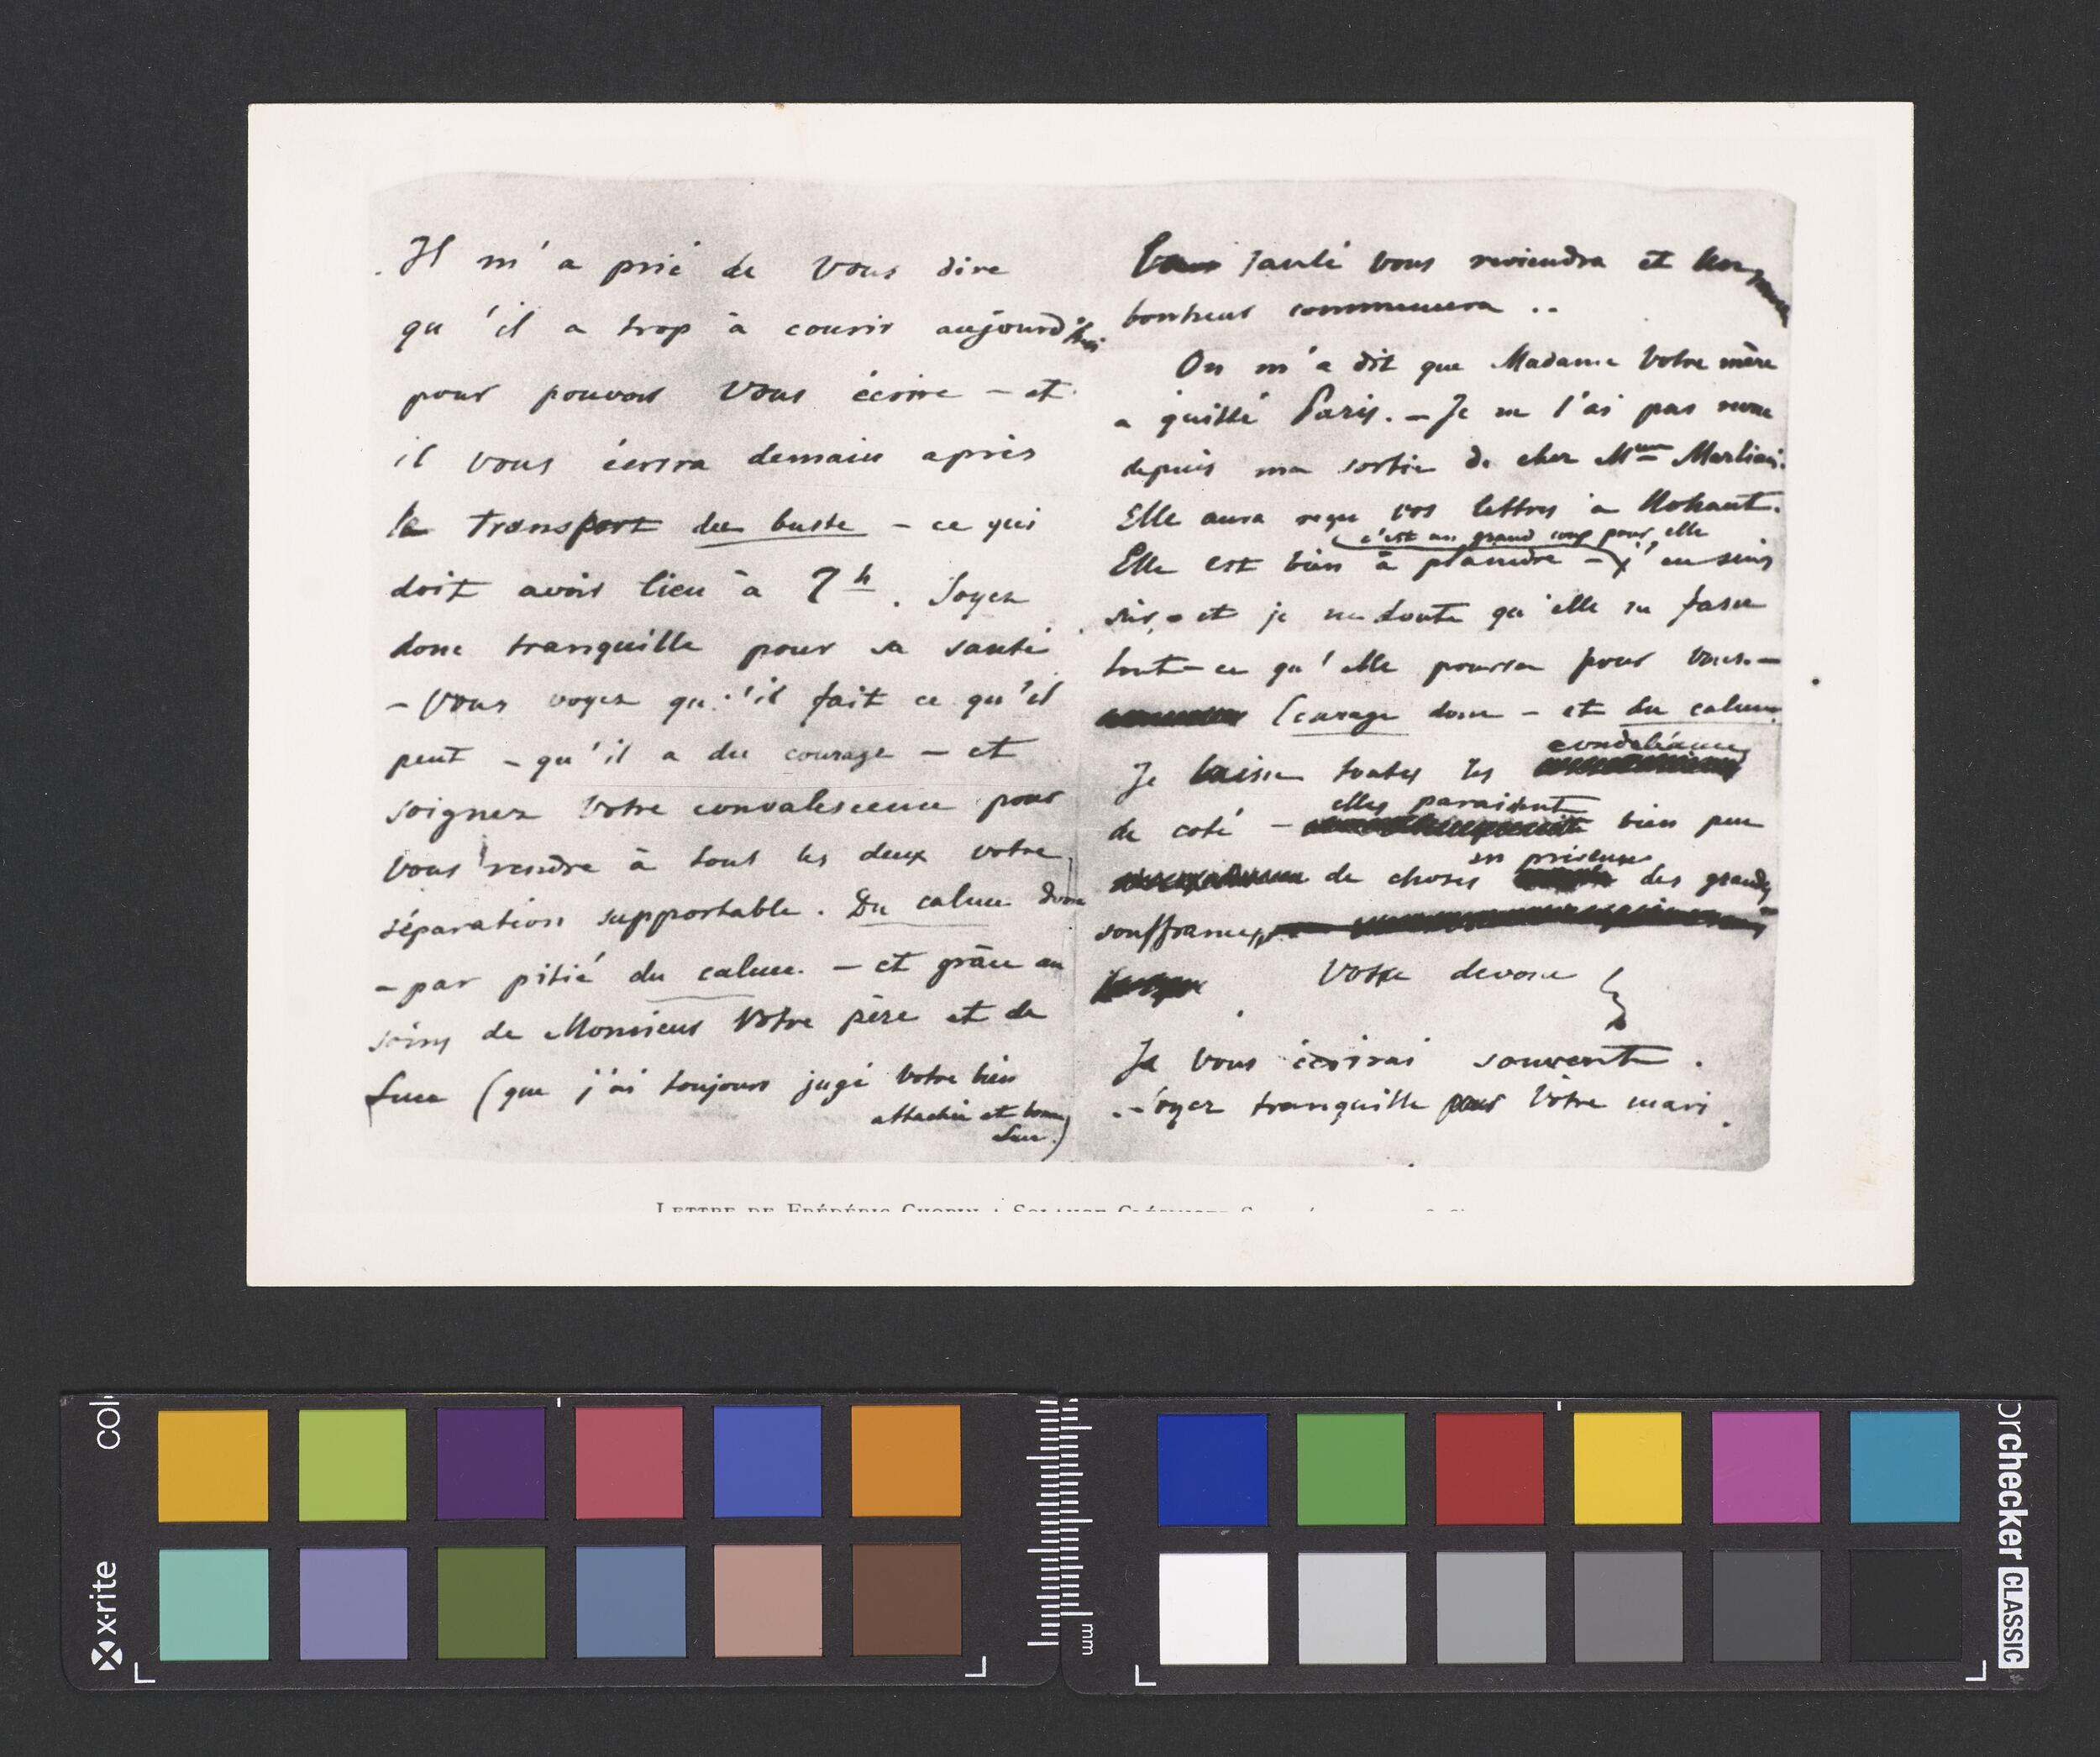 Il m'a prié de vous dire
qu'il a trop à courir aujourd'hui
pour pouvoir vous écrire – et
il vous écrira demain après
le transport du buste – ce qui
doit avoir lieu à 7h. Soyez
donc tranquille pour sa santé
– Vous voyez qu'il fait ce qu'il
peut – qu'il a du courage – et
soignez votre convalescence pour
vous rendre à tous les deux votre
séparation supportable. Du calme donc
– par pitié du calme. – et grâce au
soins de Monsieur Votre père et de
Luce (que j'ai toujours jugé votre bien
attachée et bonne
Luce.)
santé vous reviendra et un
bonheur commencera ..
On m'a dit que Madame Votre mère
a quitté Paris. – Je ne l'ai pas revue
depuis ma sortie de cher Mme Marliani.
Elle aura reçu vos lettres à Nohant.
c'est un grand coup pour elle
Elle est bien à plaindre – j'en suis
sûr, – et je ne doute qu'elle ne fasse
tout – ce qu'elle pourra pour vous. –
Courage donc – et du calme
condoléances
Je laisse toutes les
elles paraissent
de coté – bien peu
en présence
de choses des grandes
souffrances
Votre dévoué
Je vous écrirai souvent.
– Soyez tranquille pour Votre mari.
LETTRE DE FRÉDÉRIC CHOPIN A SOLANGE CLÉSINGER
x·rite
col
mm
orchecker CLASSIC